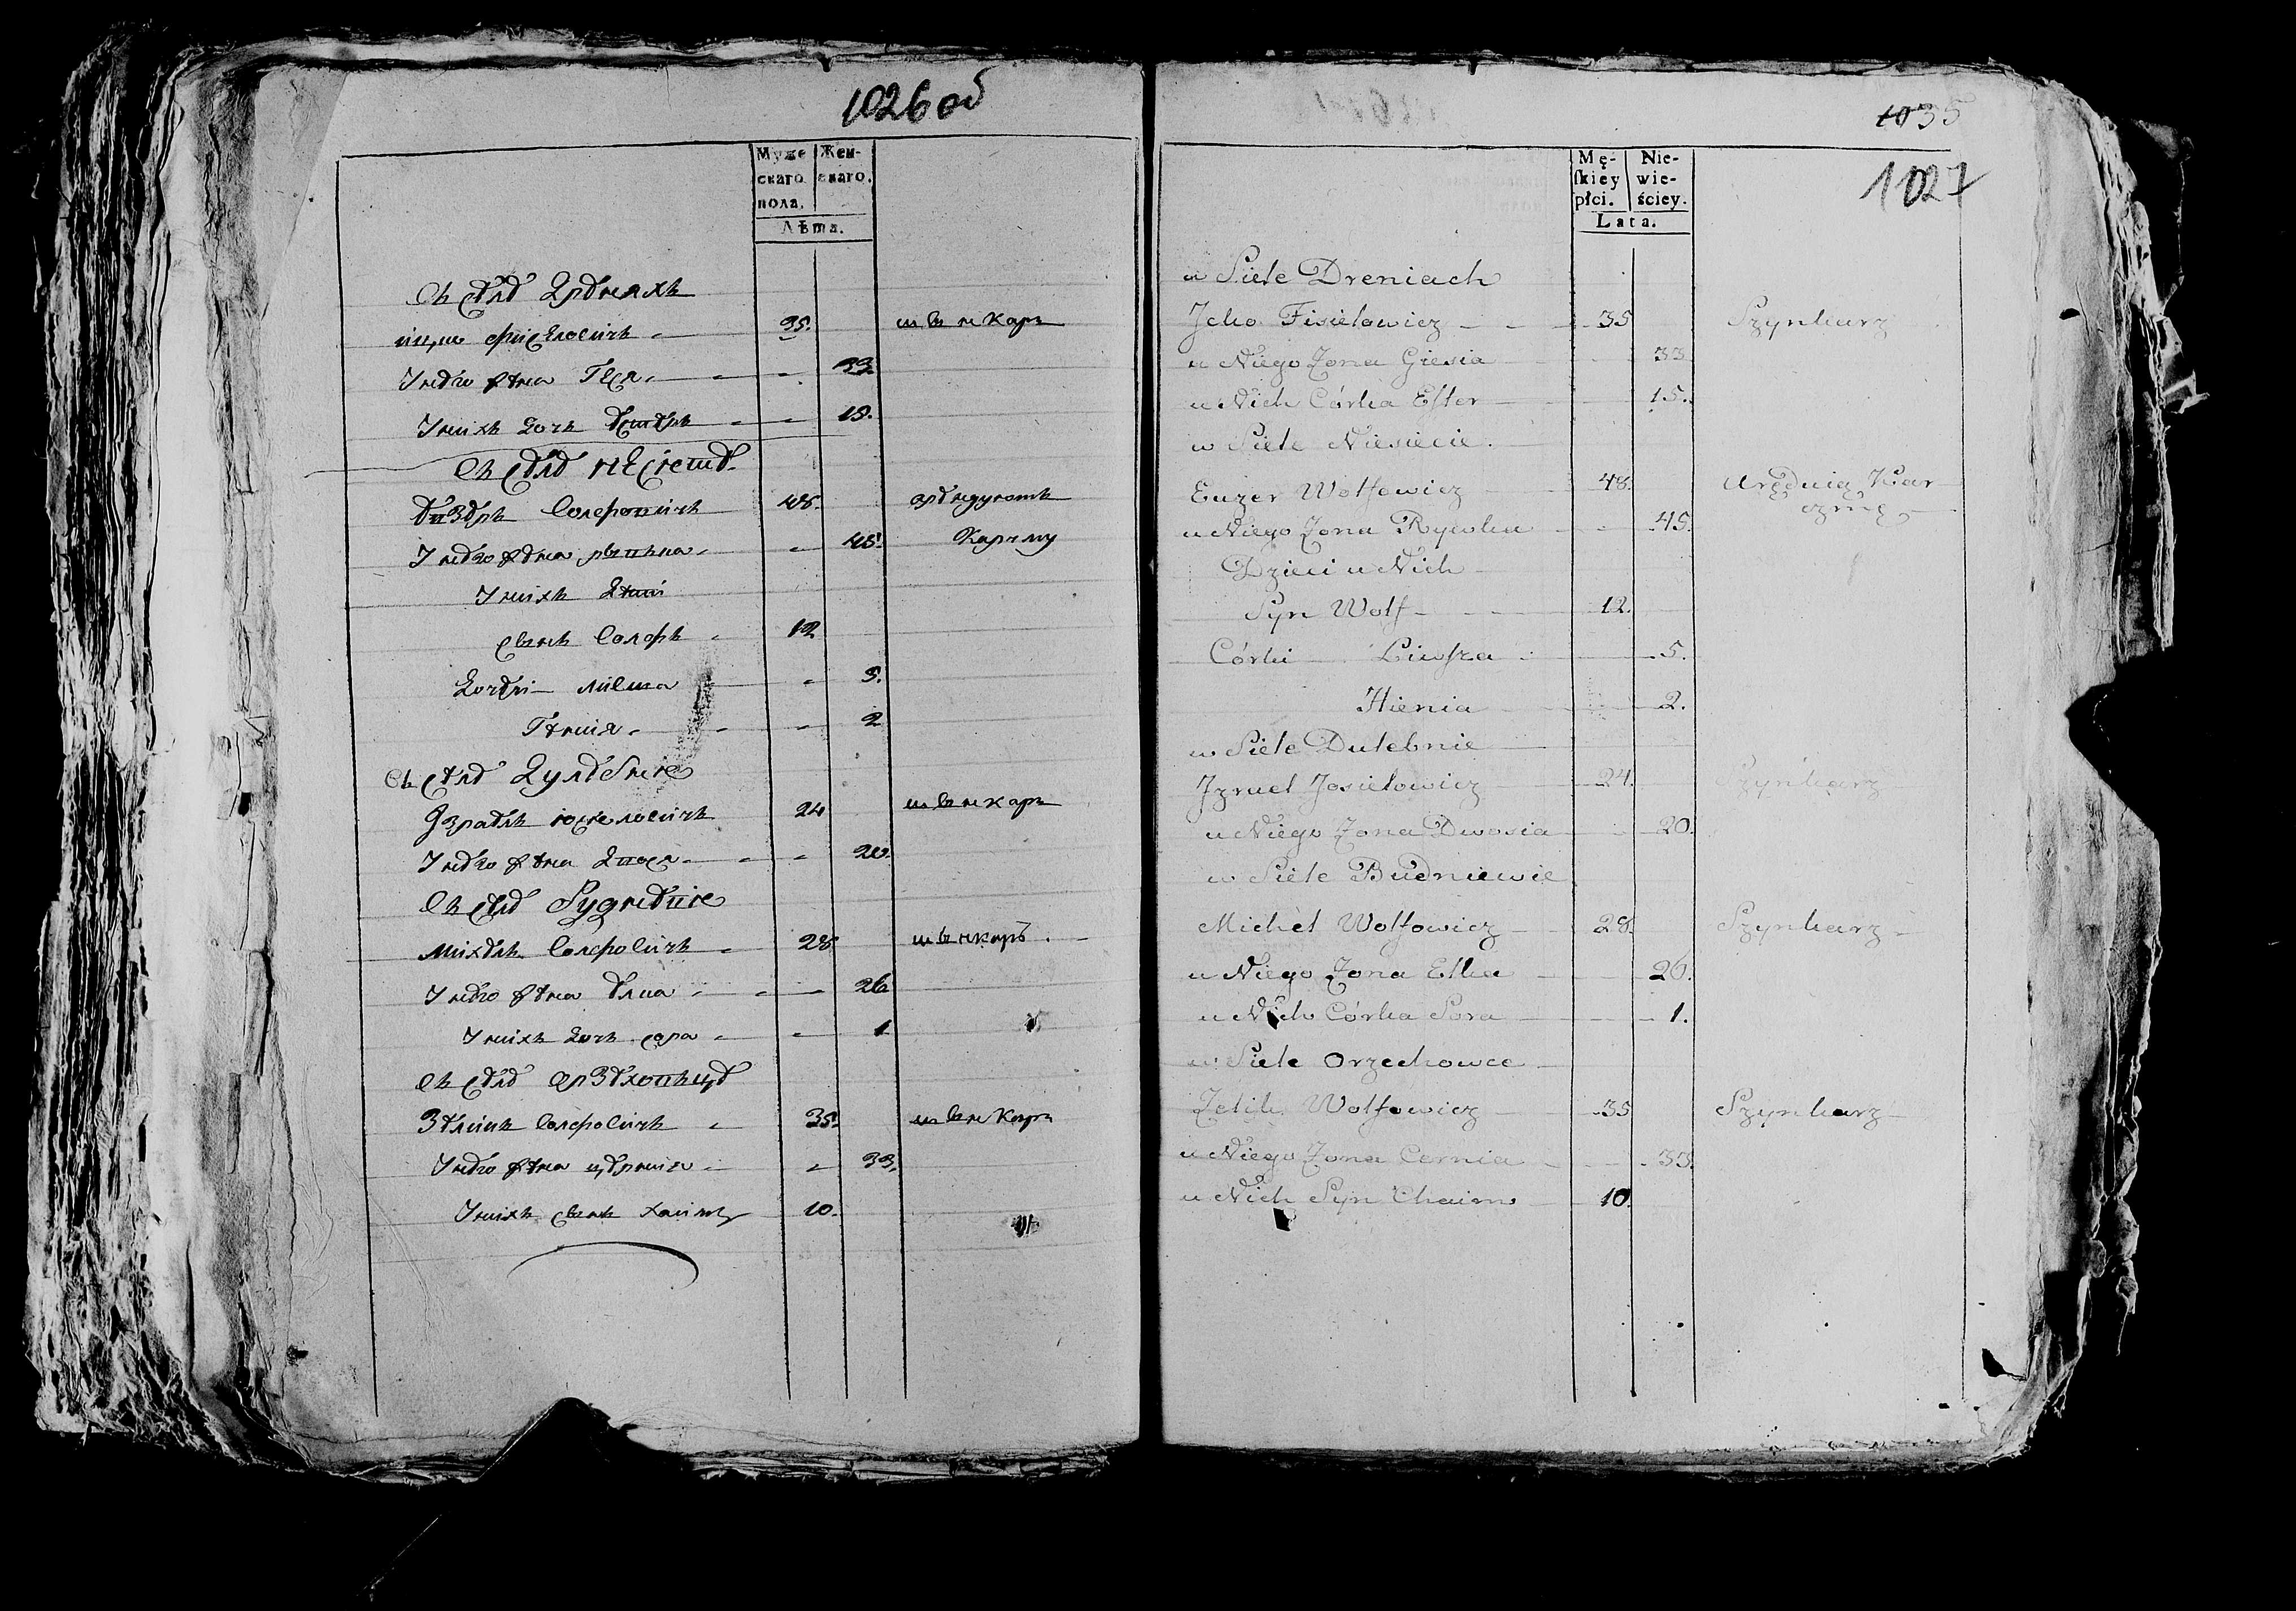 1026 об
Муже Жен-
скаго скаго.
пола.
Лѣта.
Въ селе Дреняхъ
ицко фиселовичъ 35. шынкаръ
У него жена Геся 33
У нихъ дочь Естеръ 15.
Въ селе несѣете
Ейзеръ Волфовичъ 48. арендуютъ
У него жена рывка 45. Карчму
У нихъ дети
сынъ Волфъ 12
Дочери лившa 5.
Геніа 2
Въ селе Дулебне
Израель іоселовичъ 24 шынкаръ
У него жена Двося 20.
Въ селе Будневе
Михель Волфовичъ 28 шынкаръ
У него жена Елка 26
У нихъ дочь сора 1
Въ селе орзеховце
Зеликъ Волфовичъ 35. шынкаръ
У него жена церніа 33.
У нихъ сынъ хаимъ 10.
1035
1027
Mę- Nie-
ſkiey wie-
płci. ściey.
Lata.
w Siele Dreniach
Icko Fisielowicz 35 Szynkarz
u Niego Żona Giesia 33
u Nich Córka Eſter 15.
w Siele Niesiecie.
Euzer Wolfowicz 48. Arędują Kar
u Niego Żona Rywka 45. czmę
Dzieci u Nich
Syn Wolf 12.
Córki Liwſza 5.
Hienia 2.
w Siele Dulebnie
Izruel Josielowicz 24. Szynkarz
u Niego Żona Dwosia 20.
w Siele Budniewie
Michel Wolfowicz 28. Szynkarz
u Niego Żona Elka 26.
u Nich Córka Sora 1.
w Siele Orzechowce
Zelik Wolfowicz 35 Szynkarz
u Niego Żona Cernia 33.
u Nich Syn Chaim 10.